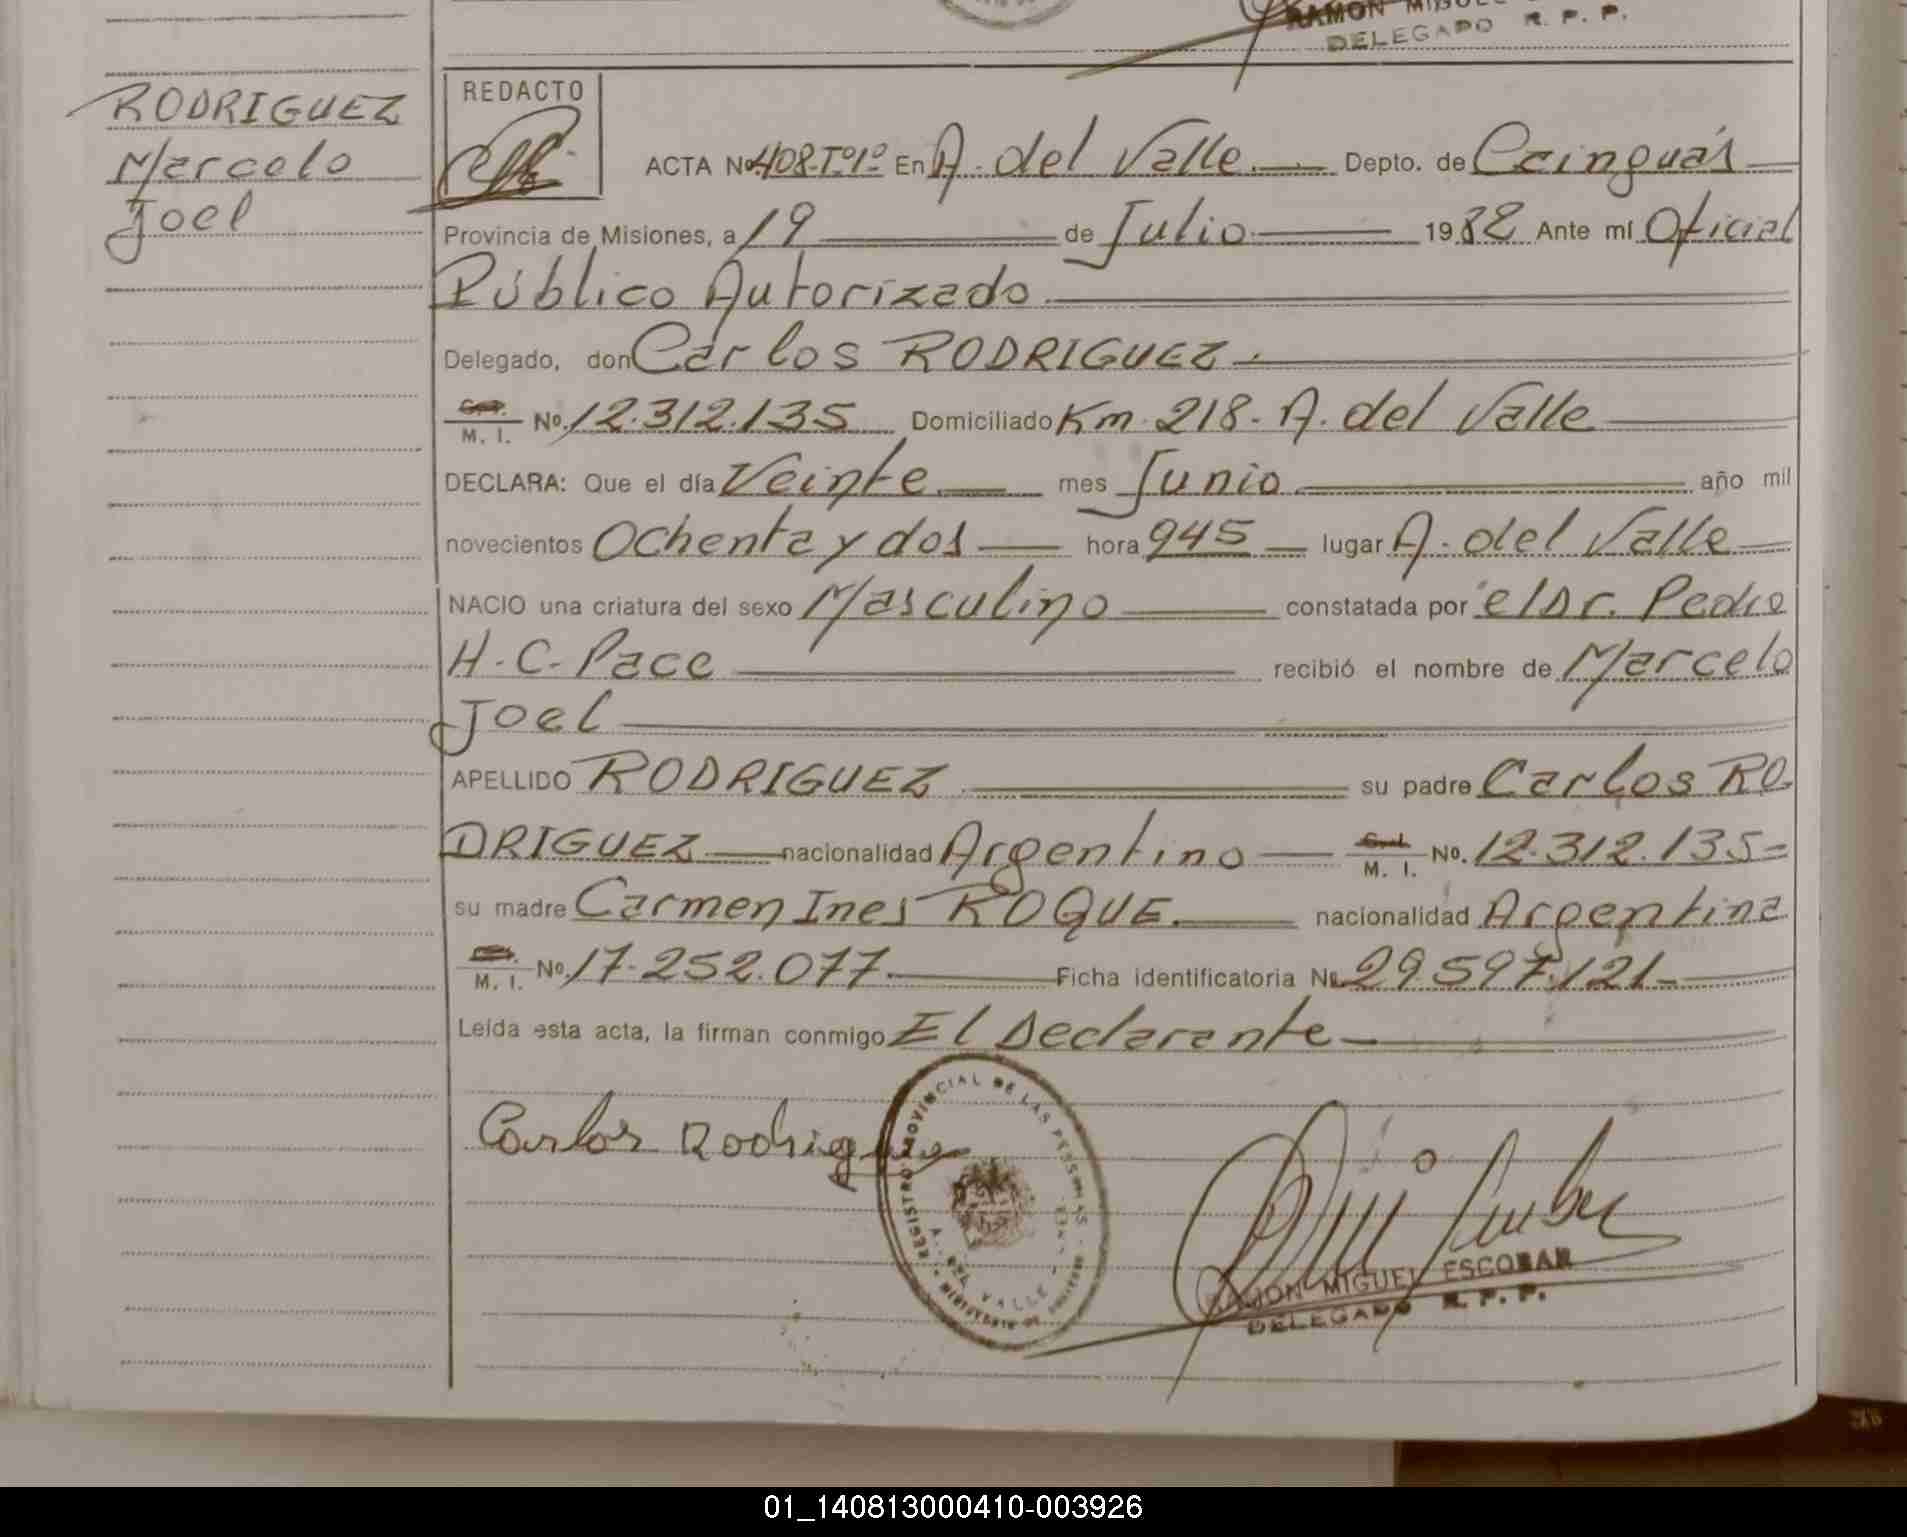 RAMON MIGUEL
DELEGADO R. P. P.
RODRIGUEZ
Marcelo
Joel
REDACTO
ACTA No. 408-Tº1º En A. del Valle Depto. de Cainguás
Provincia de Misiones, a 19 de Julio 1982 Ante mí Oficial
Público Autorizado
Delegado, don Carlos RODRIGUEZ
M. I. No. 12.312.135 Domiciliado Km. 218 - A. del Valle
DECLARA: Que el día Veinte mes Junio año mil
novecientos Ochenta y dos hora 945 lugar A. del Valle
NACIO una criatura del sexo Masculino constatada por el Dr. Pedro
H. C. Pace recibió el nombre de Marcelo
Joel
APELLIDO RODRIGUEZ su padre Carlos RO
DRIGUEZ nacionalidad Argentino M. I. No. 12.312.135
su madre Carmen Ines ROQUE. nacionalidad Argentina
M. I. No. 17.252.077 Ficha identificatoria No 29.597.121
Leída esta acta, la firman conmigo El Declarante
Carlos Rodriguez
REGISTRO PROVINCIAL DE LAS PERSONAS
A. DEL VALLE
RAMON MIGUEL ESCOBAR
DELEGADO R. P. P.
01_140813000410-003926